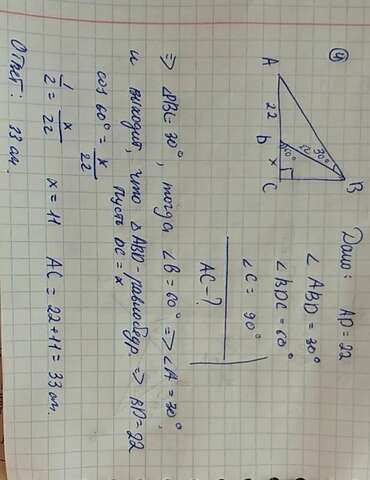 ④ Дано: AD = 22
∠ABD = 30°
∠BDC = 60°
∠C = 90°
AC - ?
A
22
D
x
C
B
30°
22
60°
=> ∠DBC = 30°, тогда ∠B = 60° => ∠A = 30°,
и выходит, что △ABD - равнобедр. => BD = 22
Пусть DC = x
cos 60° = x/22
1/2 = x/22 x = 11 AC = 22 + 11 = 33 см.
Ответ: 33 см.